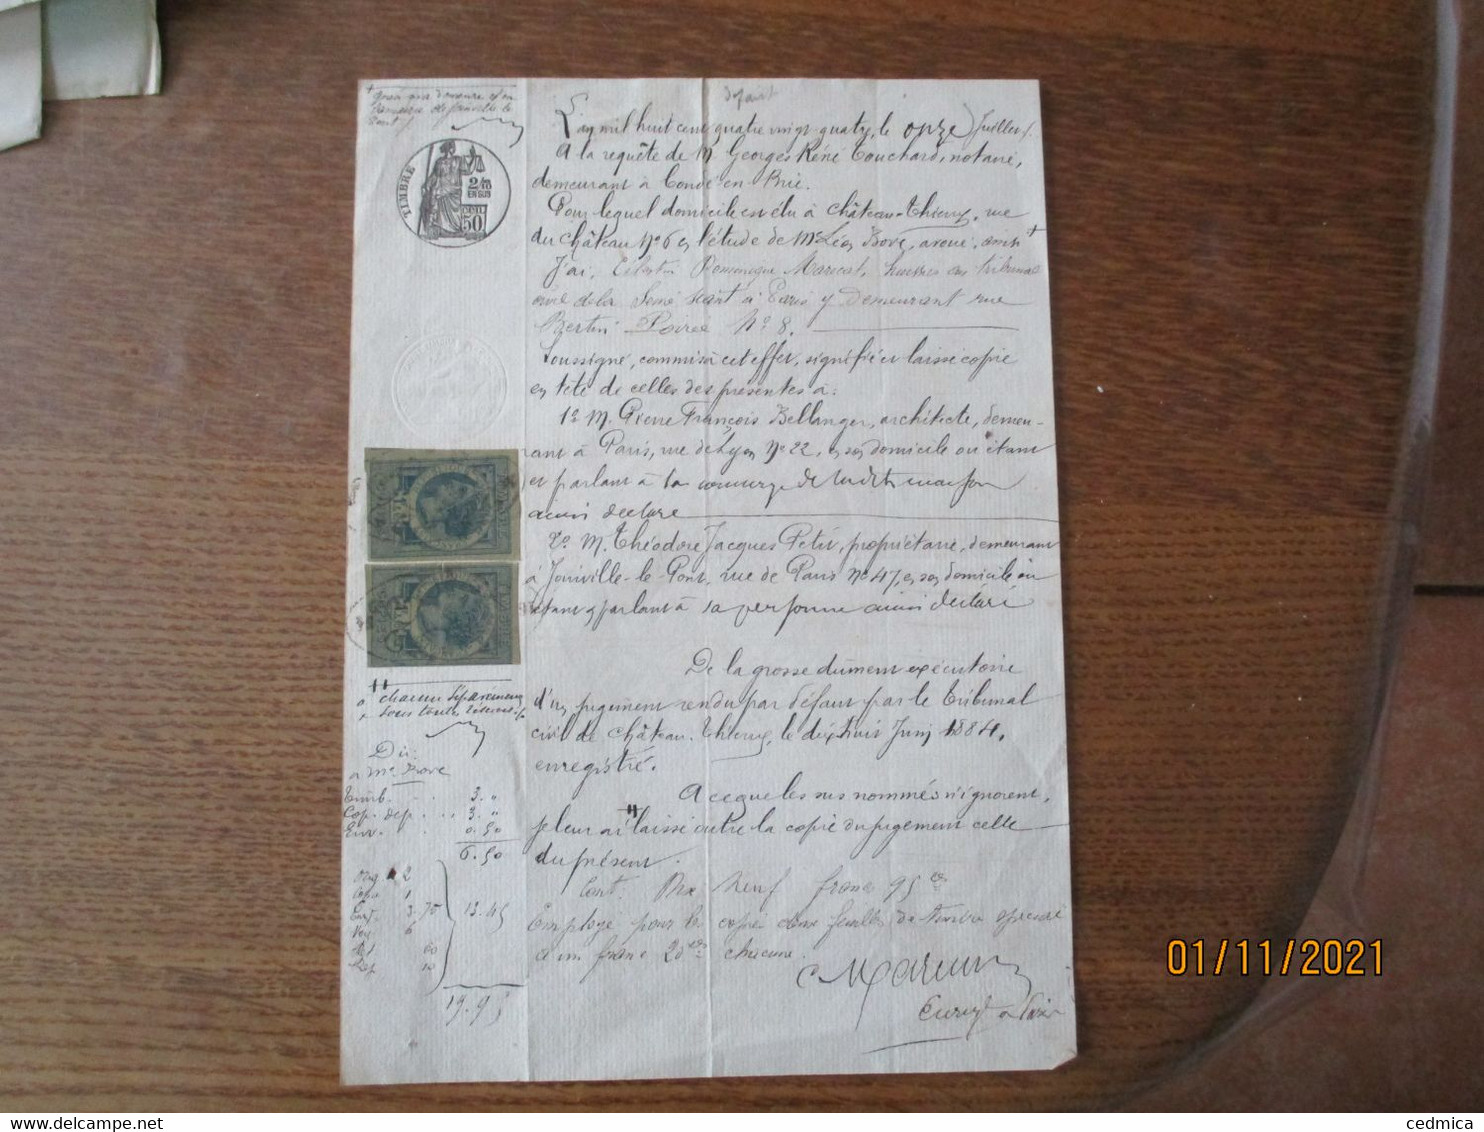 defaut
L'an mil huit cent quatre vingt-quatre, le onze Juillet
A la requête de M. Georges René Touchard, notaire,
demeurant à Condé-en-Brie.
Pour lequel domicile est élu à Château-Thierry, rue
du Château No 6 en l'étude de Me Léon Bove, avoué,
J'ai, Célestin Dominique Marécat, huissier au tribunal
civil de la Seine séant à Paris y demeurant rue
Bertin-Poirée No 8.
Soussigné, commis à cet effet, signifié et laissé copie
en tête de celles des présentes à:
1o M. Pierre François Bellanger, architecte, demeu-
rant à Paris, rue de Lyon No 22, en son domicile où étant
et parlant à la concierge de ladite maison
ainsi déclaré
2o M. Théodore Jacques Petit, propriétaire, demeurant
à Joinville-le-Pont, rue de Paris No 47, en son domicile où
étant et parlant à sa personne ainsi déclaré
De la grosse dûment exécutoire
d'un jugement rendu par défaut par le Tribunal
civil de Château-Thierry, le dix huit Juin 1884,
enregistré.
A ce que les sus nommés n'ignorent,
je leur ai " laissé outre la copie du jugement celle
du présent.
Cout: Dix neuf francs 95 ces
Employé pour les copies deux feuilles de timbre spécial
à un franc 20 ces chacune.
TIMBRE
2/10
EN SUS
50
" chacun séparement
sous toutes réserves
Dû
à Me Bove
Timb. . . 3. "
Cop. dep. . . 3. "
Env. . . 0.50
6.50
Orig 2
Copie 1
3.70
6
13.45
60
10
19.95
01/11/2021
delcampe.net
cedmica